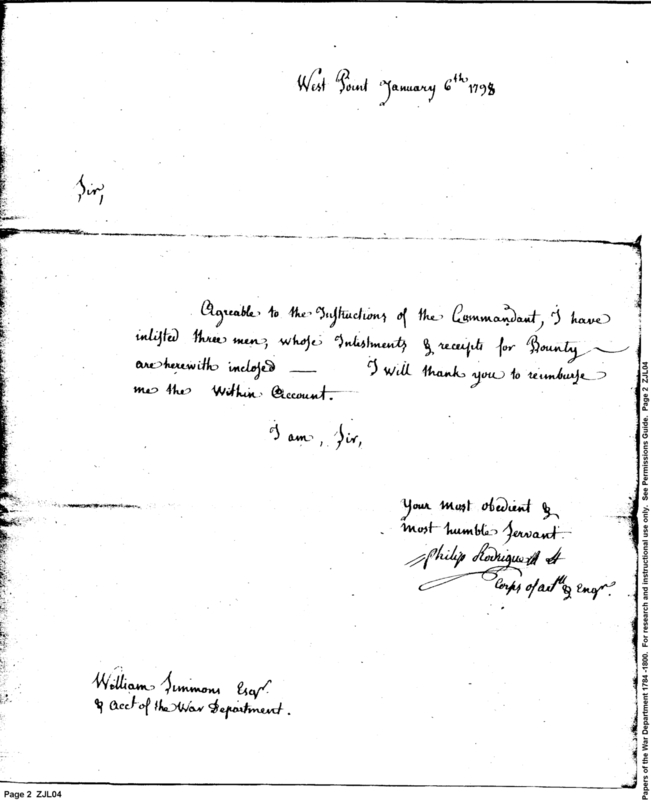 West Point January 6th 1798
Sir,
Agreable to the Instructions of the Commandant, I have
inlisted three men, whose Inlistments & receipts for Bounty
are herewith inclosed — I will thank you to reimburse
me the Within Account.
I am, Sir,
Your most obedient &
most humble Servant
Philip Rodrigue Lt
Corps of artts & Engrs.
William Simmons Esqr.
& acct of the War Department.
Page 2 ZJL04
Papers of the War Department 1784 -1800. For research and instructional use only. See Permissions Guide. Page 2 ZJL04